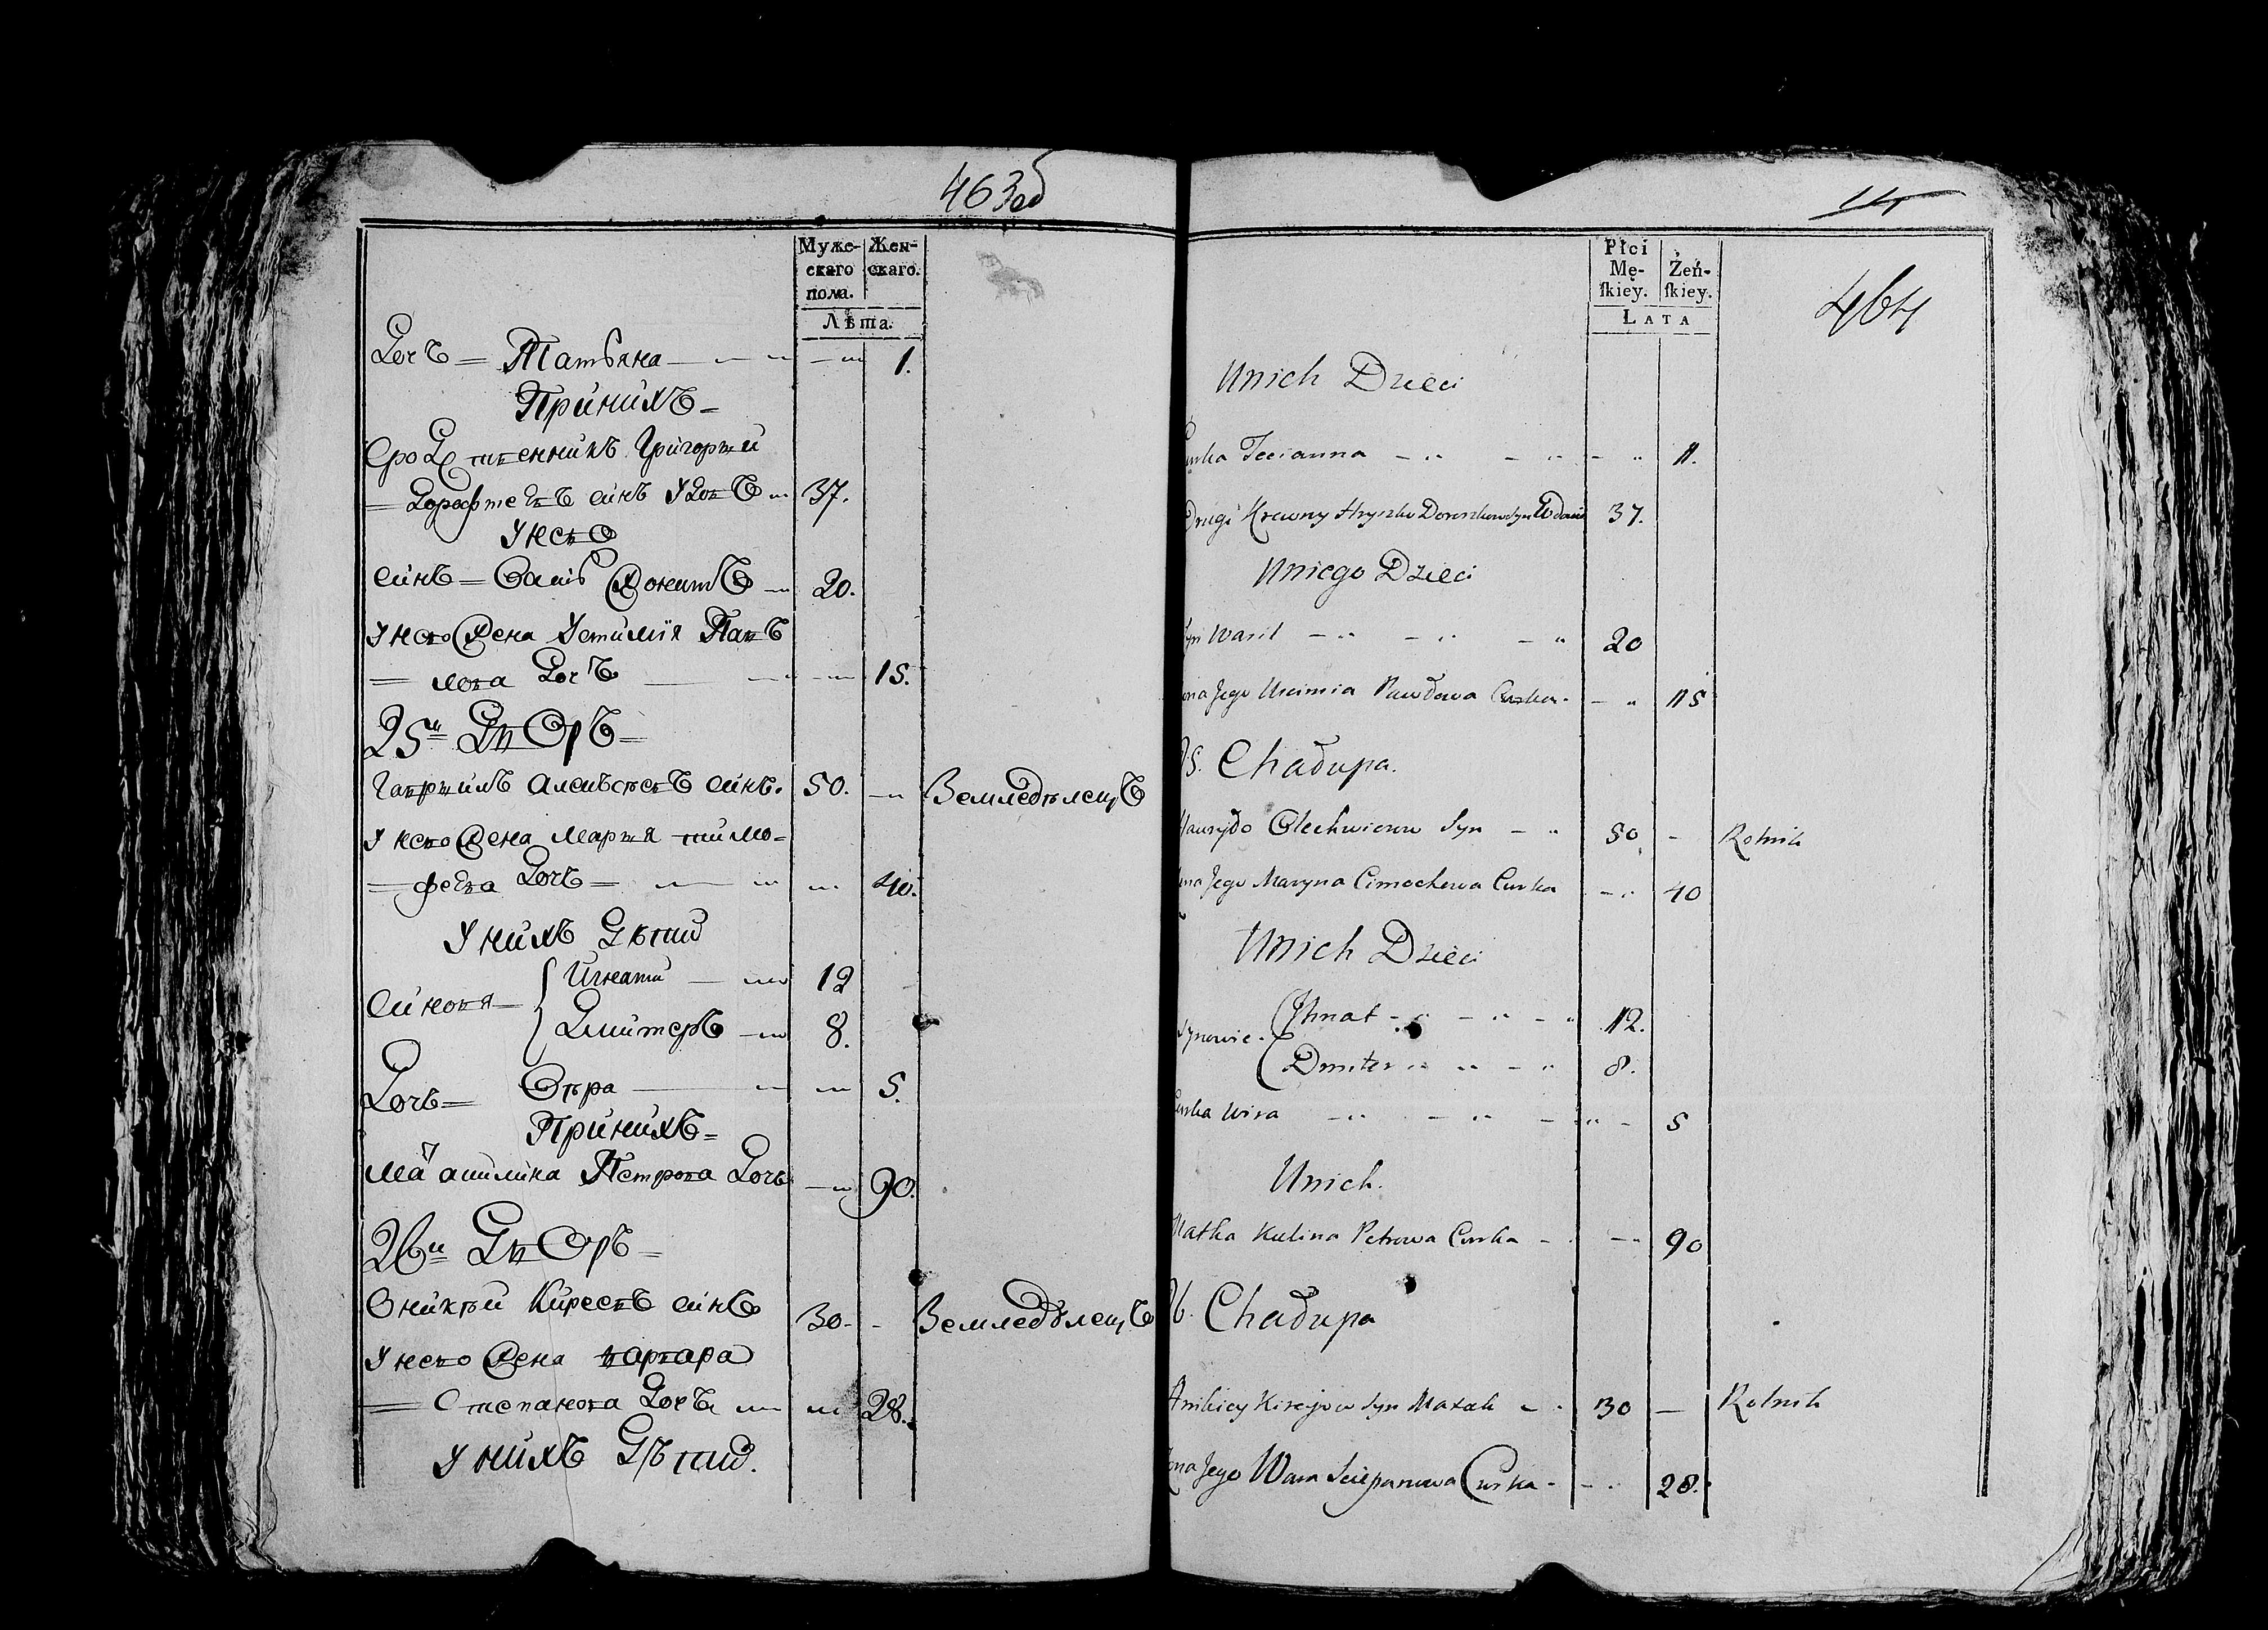 463об
Муже- Жен-
скаго скаго.
пола.
Лѣта.
Дочь Татьяна 1.
При нихъ
Сродственникъ Григорей
Дорофеевъ синъ удовъ 37.
У нево
синъ Василь Женатъ 20.
У нево жена Устимія Пав
лова Дочь 15.
25й Дворъ
Гаврилъ Алексеевъ синъ. 50. Земледѣлецъ
У нево жена Марья Тимо-
феева Дочь 40.
У нихъ Дѣти
Синовя Игнати 12
Дмитеръ 8.
Дочь Вѣра 5.
При нихъ
Мать Акилина Петрова Дочь 90.
26й Дворъ
Оникей Киреевъ синъ 30. Земледѣлецъ
У нево жена Варвара
Степанова Дочь 28.
У нихъ Дѣти.
464
Płci
Mę- Żeń-
ſkiey. ſkiey.
LATA
Unich Dzieci
Curka Tecianna 1.
Drugi Krewny Hryszko Doroszkow Syn Wdowiec 37.
Uniego Dzieci
Syn Wasil 20
Zona Jego Uscimia Pawłowa Curka 15
25. Chałupa.
Hawryło Olechwierow Syn 50 Rolnik
Zona Jego Maryna Cimochowa Curka 40
Unich Dzieci
Synowie Jhnat 12.
Dmiter 8.
Curka Wira 5
Unich.
Matka Kulina Petrowa Curka 90
26. Chałupa
Anikiey Kirejow Syn Maxak 30 Rolnik
Zona Jego Wara Sciepanowa Curka 28.